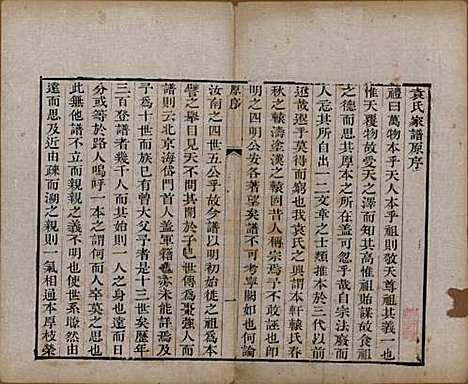 袁氏家譜原序
禮曰萬物本乎天人本乎祖則敬天尊祖其義一也
惟天覆物故愛天之澤而高惟祖貽謀故食祖
之德而思其厚本之所以不可已也自宗法廢而
人忘其祖於是一二文章之士類推本於三代以前
遠遐邈乎莫得而窮也我袁氏之興謂本軒轅氏春
秋之轅濤塗漢之轅固昔人稱宗焉予不敢誣也即
明之四明公安各著望矣譜不可考寧闕如也何論
汝南之四世五公乎故今譜以明初始徙之祖為本
譬之舉目見天不問其開於子也傳為毫強人而
譜則云北京海岱門首人蓋軍籍也亦未能詳焉及
予為十世而族有曾大父予者是十三世矣歷年
三百登譜者幾千人其始一人之身也遠而日
分將等於路人嗚呼一本之謂何而人卒莫之思也
無他譜不立而親親之義不明也使世系瞭然由
遠而思及近由疎而溯之親則一氣相通本厚枝榮
原序
一